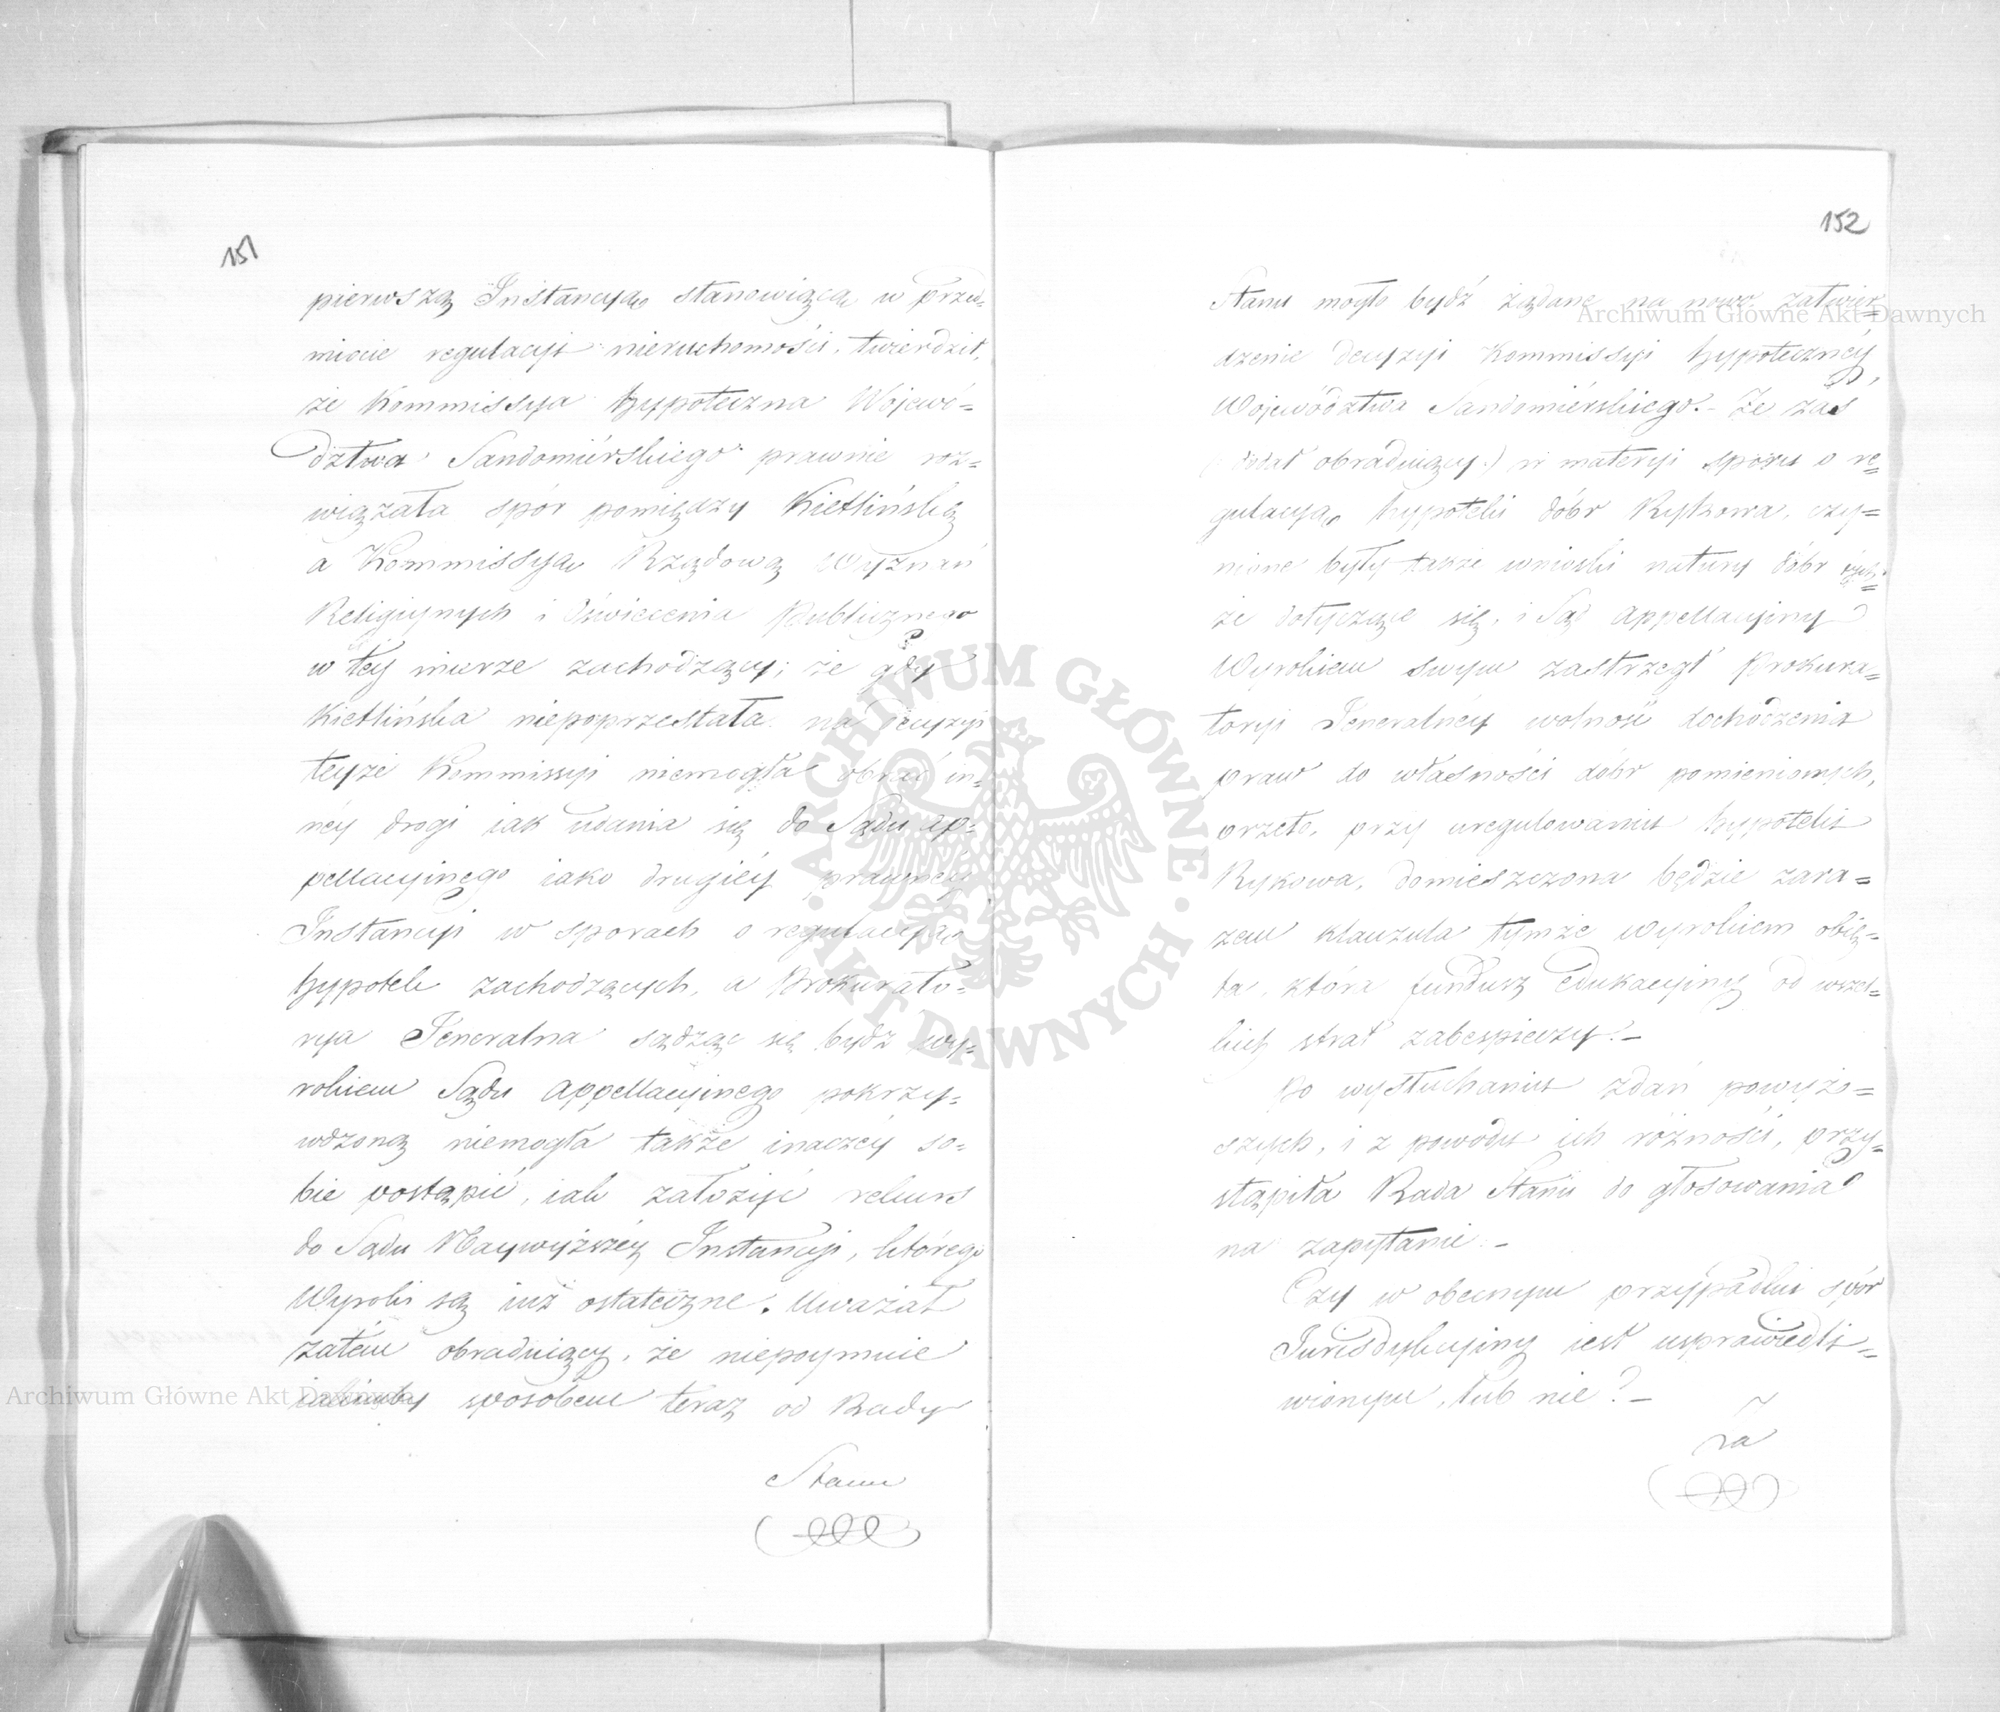 151
pierwszą Instancyą stanowiącą w przed-
miocie regulacyi nieruchomości, twierdził,
że Kommissya hypoteczna Wojewó=
dztwa Sandomiérskiego prawnie roz=
wiązała spór pomiędzy Kietlińską
a Kommissyą Rządową Wyznań
Religiynych i Oświecenia Publicznego
w tey mierze zachodzący; że gdy
Kietlińska niepoprzestała na decyzyi
teyże Kommissyi niemogła obrać in=
néy drogi iak udania się do Sądu ap=
pellacyinego iako drugiéy prawnéy
Instancyi w sporach o regulacyą
hypotek zachodzących, a Prokurato=
rya Jeneralna sądząc się bydź wy=
rokiem Sądu Appellacyinego pokrzy=
wdzoną niemogła także inaczéy so=
bie postąpić, iak założyć rekurs
do Sądu Naywyższéy Instancyi, którego
Wyroki są iuż ostateczne. Uważał
zatém obraduiący, że niepoymuie
iakimby sposobem teraz od Rady
Stanu
152
Stanu mogło bydź żądane na nowo zatwier=
dzenie decyzyi Kommissyi hypotecznéy
Województwa Sandomiérskiego. - Że zaś
(: dodał obraduiący :) w materyi sporu o re=
gulacyą hypoteki dóbr Rykowa, czy=
nione były także wnioski natury dóbr tych=
że dotyczące się, i Sąd Appellacyiny
Wyrokiem swym zastrzegł Prokura=
toryi Jeneralnéy wolność dochodzenia
praw do własności dóbr pomienionych,
przeto, przy uregulowaniu hypoteki
Rykowa, domieszczona będzie zara=
zem klauzula tymże wyrokiem obię=
ta, która fundusz Edukacyiny od wszel=
kiey strat zabespieczy. -
Po wysłuchaniu zdań powyż=
szych, i z powodu ich różności, przy=
stąpiła Rada Stanu do głosowania
na zapytanie: -
Czy w obecnym przypadku spór
Jurisdykcyiny iest usprawiedli=
wionym, lub nie? -
Za
Archiwum Główne Akt Dawnych
Archiwum Główne Akt Dawnych
ARCHIWUM GŁÓWNE AKT DAWNYCH